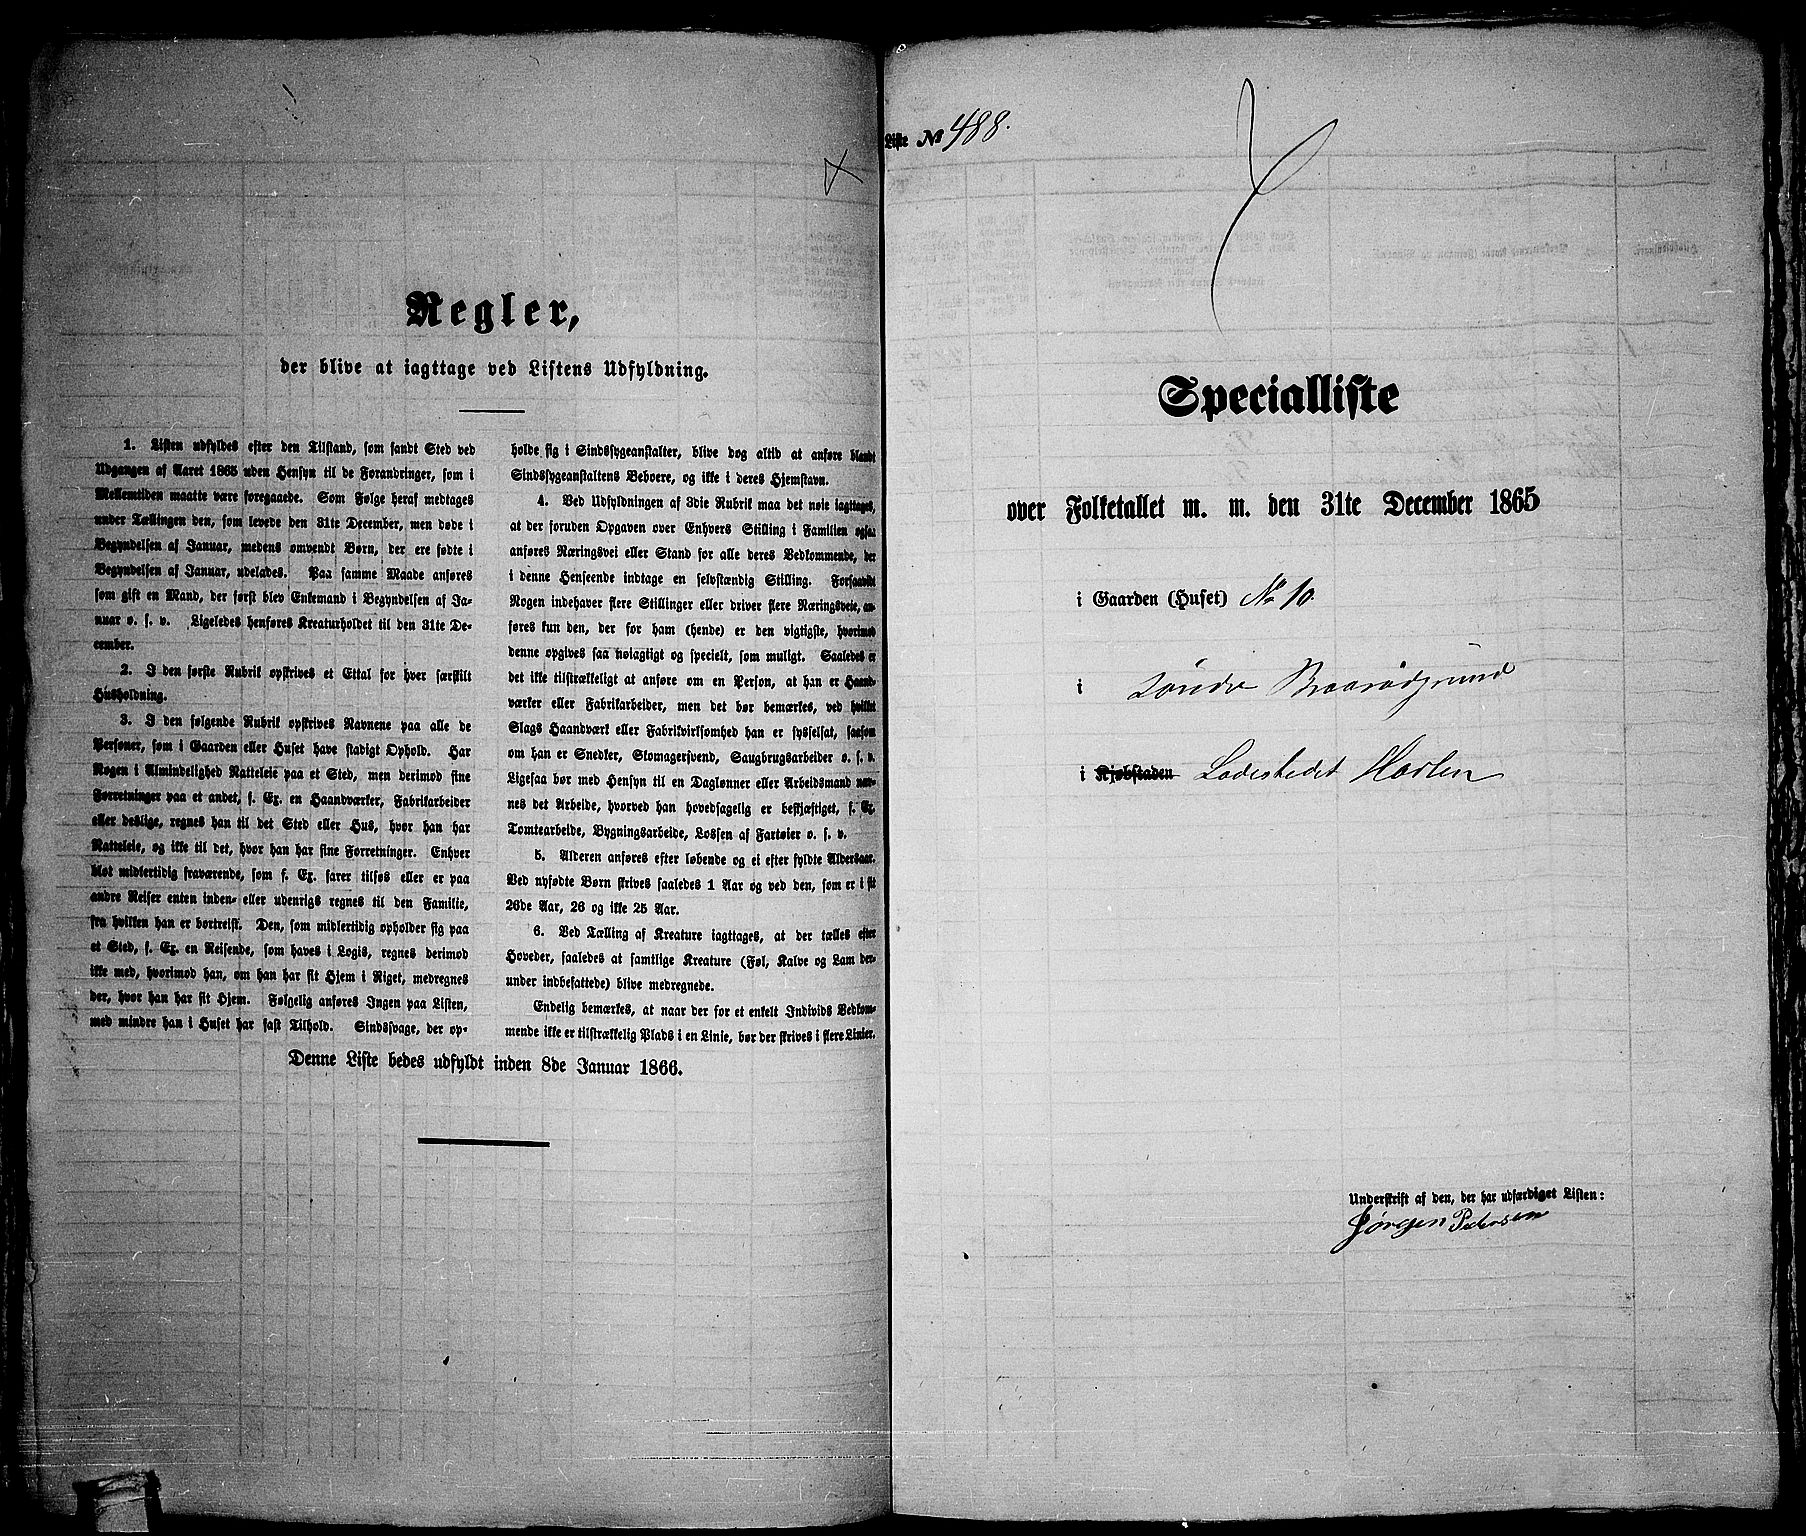 Regler,
der blive at iagttage ved Listens Udfyldning.
1. Listen udfyldes efter den Tilstand, som fandt Sted ved
Udgangen af Aaret 1865 uden Hensyn til de Forandringer, som i
Mellemtiden maatte være foregaaede. Som Følge heraf medtages
under Tællingen den, som levede den 31te December, men døde i
Begyndelsen af Januar, medens omvendt Børn, der ere fødte i
Begyndelsen af Januar, udelades. Paa samme Maade anføres
som gift en Mand, der først blev Enkemand i Begyndelsen af Ja-
nuar o. s. v. Ligeledes henføres Kreaturholdet til den 31te De-
cember.
2. I den første Rubrik opskrives et Ettal for hver særskilt
Husholdning.
3. I den følgende Rubrik opskrives Navnene paa alle de
Personer, som i Gaarden eller Huset have stadigt Ophold. Har
Nogen i Almindelighed Natteleie paa et Sted, men derimod sine
Forretninger paa et andet, f. Ex. en Haandværker, Fabrikarbeider
eller deslige, regnes han til det Sted eller Hus, hvor han har
Natteleie, og ikke til det, hvor han har sine Forretninger. Enhver
blot midlertidig fraværende, som f. Ex. farer tilsøs eller er paa
andre Reiser enten inden- eller udenrigs regnes til den Familie,
fra hvilken han er bortreist. Den, som midlertidig opholder sig paa
et Sted, f. Ex. en Reisende, som haves i Logis, regnes derimod
ikke med, hvorimod han, om han har sit Hjem i Riget, medregnes
der, hvor han har sit Hjem. Følgelig anføres Ingen paa Listen,
med mindre han i Huset har fast Tilhold. Sindssvage, der op-
holde sig i Sindssygeanstalter, blive dog altid at anføre blandt
Sindssygeanstaltens Beboere, og ikke i deres Hjemstavn.
4. Ved Udfyldningen af 3die Rubrik maa det nøie iagttages,
at der foruden Opgaven over Enhvers Stilling i Familien ogsaa
anføres Næringsvei eller Stand for alle deres Vedkommende, der
i denne Henseende indtage en selvstændig Stilling. Forsaavidt
Nogen indehaver flere Stillinger eller driver flere Næringsveie, an-
føres kun den, der for ham (hende) er den vigtigste, hvorimod
denne opgives saa nøiagtigt og specielt, som muligt. Saaledes er
det ikke tilstrækkeligt at anføre om en Person, at han er Haand-
værker eller Fabrikarbeider, men det bør bemærkes, ved hvilket
Slags Haandværk eller Fabrikvirksomhed han er sysselsat, saasom
om han er Snedker, Skomagersvend, Saugbrugsarbeider o. s. v.
Ligesaa bør med Hensyn til en Dagløнner eller Arbeidsmand næv-
nes det Arbeide, hvorved han hovedsagelig er beskjæftiget, f. Ex.
Tomtearbeide, Bygningsarbeide, Lossen af Fartøier o. s. v.
5. Alderen anføres efter løbende og ei efter fyldte Aldersaar.
Ved nyfødte Børn skrives saaledes 1 Aar og ved den, som er i sit
26de Aar, 26 og ikke 25 Aar.
6. Ved Tælling af Kreature iagttages, at der tælles efter
Hoveder, saaledes at samtlige Kreature (Føl, Kalve og Lam der-
under indbefattede) blive medregnede.
Endelig bemærkes, at naar der for et enkelt Individs Vedkom-
mende ikke er tilstrækkelig Plads i en Linie, bør der skrives i flere Linier.
Denne Liste bedes udfyldt inden 8de Januar 1866.
Liste № 488.
Specialliste
over Folketallet m. m. den 31te December 1865
i Gaarden (Huset) No 10.
i Søndre
i Kjøbstaden Ladestedet Horten
Underskrift af den, der har udfærdiget Listen:
Jørgen Pedersen